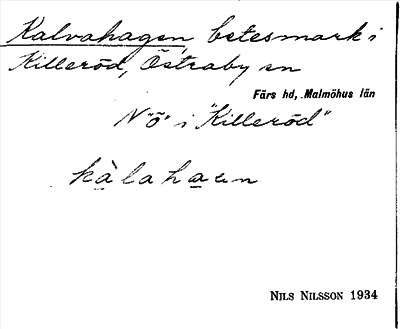 Kalvahagen, betesmark i
Killeröd, Östraby sn
Färs hd, Malmöhus län
N "ö" i "Killeröd"
kàlahaen
NILS NILSSON 1934